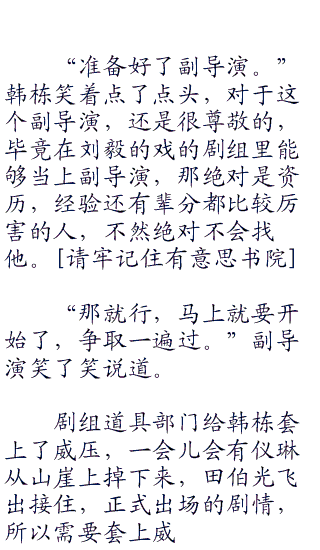 “准备好了副导演。”
韩栋笑着点了点头，对于这
个副导演，还是很尊敬的，
毕竟在刘毅的戏的剧组里能
够当上副导演，那绝对是资
历，经验还有辈分都比较厉
害的人，不然绝对不会找
他。[请牢记住有意思书院]
“那就行，马上就要开
始了，争取一遍过。”副导
演笑了笑说道。
剧组道具部门给韩栋套
上了威压，一会儿会有仪琳
从山崖上掉下来，田伯光飞
出接住，正式出场的剧情，
所以需要套上威